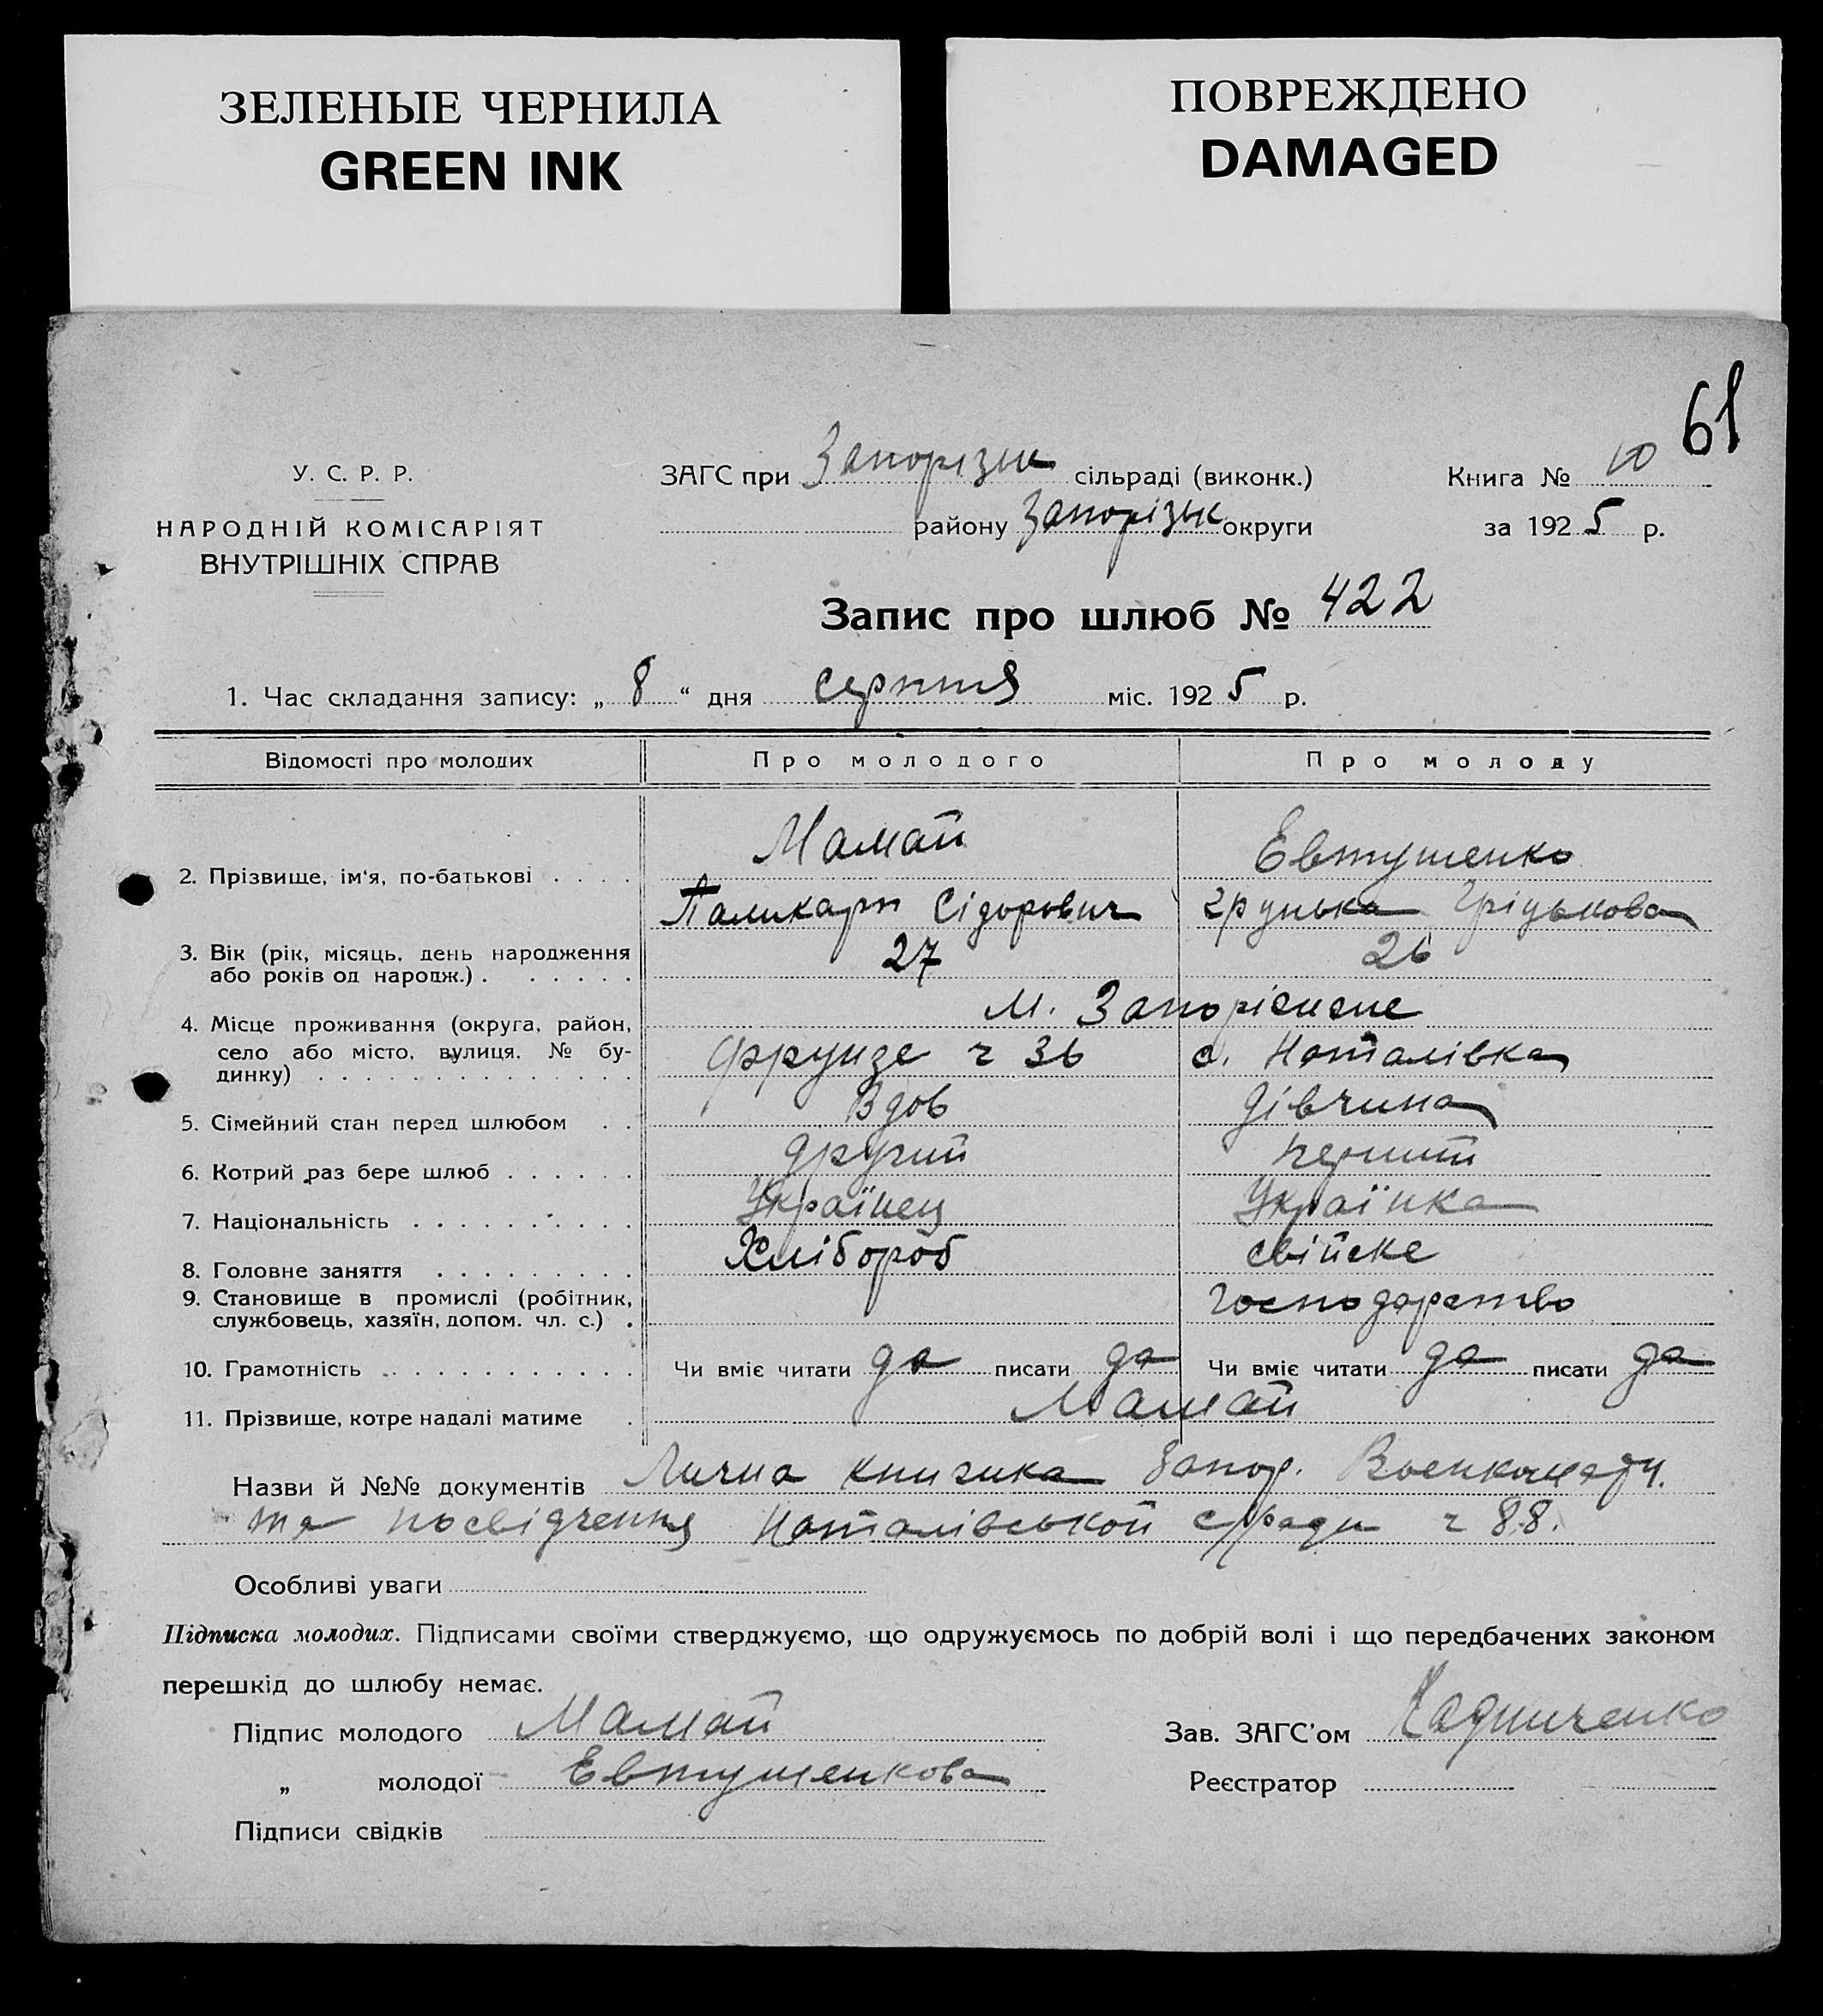 ЗЕЛЕНЫЕ ЧЕРНИЛА
GREEN INK
ПОВРЕЖДЕНО
DAMAGED
61
У. С. Р. Р.
НАРОДНІЙ КОМІСАРІЯТ
ВНУТРІШНІХ СПРАВ
ЗАГС при Запорізьк сільраді (виконк.)
району Запорізьк округи
Книга № 10
за 1925 р.
Запис про шлюб № 422
1. Час складання запису: „ 8 “ дня серпня міс. 1925 р.
Відомості про молодих Про молодого Про молоду
2. Прізвище, ім'я, по-батькові Мамай Евтушенко
Паликарп Сідорович Грунька Гріцькова
3. Вік (рік, місяць, день народження або років од народж.) 27 26
4. Місце проживання (округа, район, село або місто, вулиця, № будинку) м.
Фрунзе ч 36 с. Наталівка
5. Сімейний стан перед шлюбом Вдов дівчина
6. Котрий раз бере шлюб другий перший
7. Національність Українец Українка
8. Головне заняття Хлібороб свійске
9. Становище в промислі (робітник, службовець, хазяїн, допом. чл. с.) господарство
10. Грамотність Чи вміє читати да писати да Чи вміє читати да писати да
11. Прізвище, котре надалі матиме Мамай
Назви й №№ документів Лична книжка Запор.
та посвідчення Наталівськой с/ради ч 88.
Особливі уваги
Підписка молодих. Підписами своїми стверджуємо, що одружуємось по добрій волі і що передбачених законом
перешкід до шлюбу немає.
Підпис молодого Мамай
„ молодої Евтушенкова
Підписи свідків
Зав. ЗАГС'ом
Реєстратор